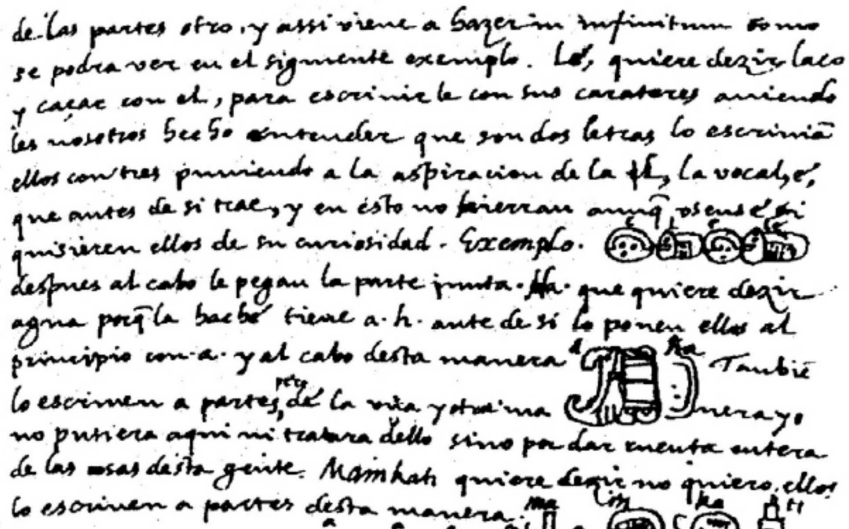 de las partes otro, y assi viene a hazer in infinitum como
se podra ver en el siguiente exemplo. Lé, quiere dezir laço
y caçar con el, para escrivir le con sus carateres aviendo
les nosotros hecho entender que son dos letras lo escrivian
ellos con tres puniendo a la aspiracion de la l, la vocal, é,
que antes de si trae, y en esto no hierran aunq̃, osense si
quisieren ellos de su curiosidad. Exemplo. e l e le
despues al cabo le pegan la parte junta. Ha. que quiere dezir
agua porq̃ la haché tiene a. h. ante de si lo ponen ellos al
principio con a. y al cabo desta manera a ha Tambiẽ
lo escriven a partes, pero de la una y otra ma nera yo
no pusiera aqui ni tratara dello sino por dar cuenta entera
de las cosas desta gente. Mainkati quiere dezir no quiero, ellos
lo escriven a partes desta manera. ma in ka ti